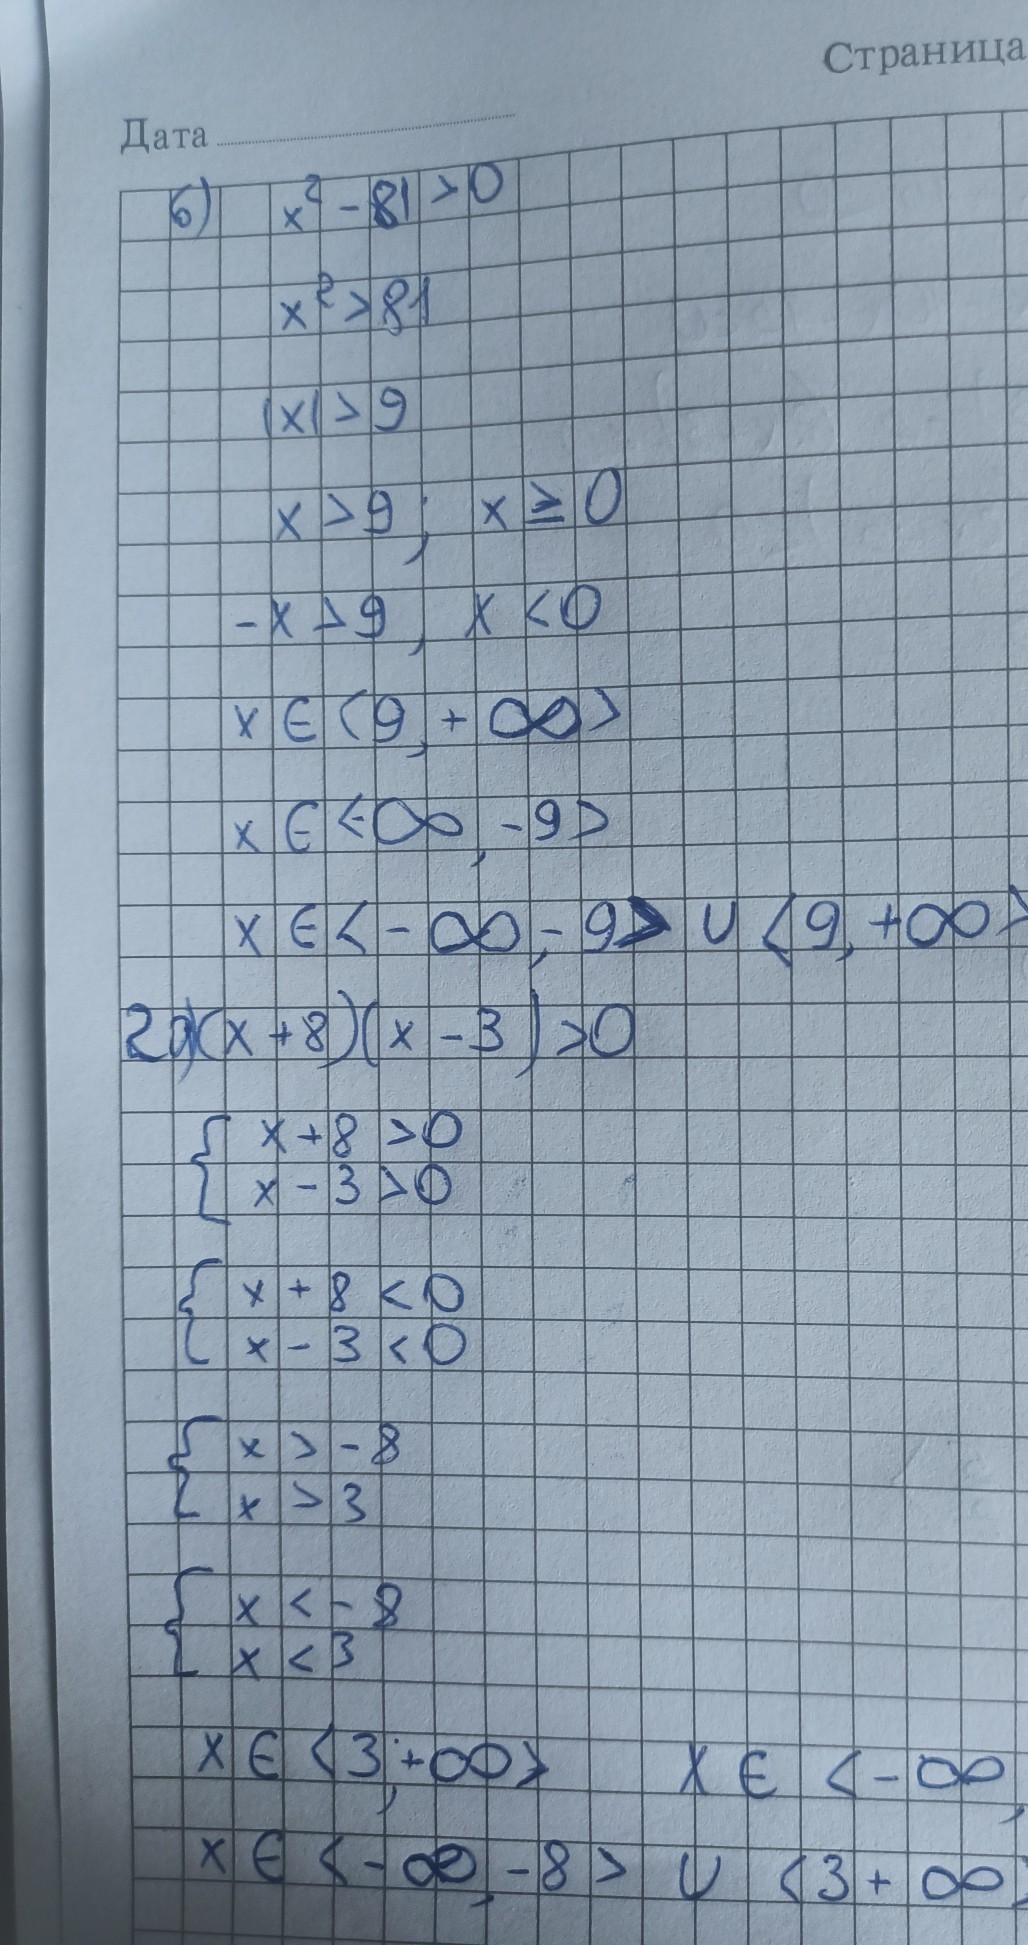 Страница
Дата
б) x² - 81 > 0
x² > 81
|x| > 9
x > 9, x ≥ 0
-x > 9, x < 0
x ∈ <9, + ∞>
x ∈ <-∞, -9>
x ∈ < - ∞, - 9> ∪ <9, +∞>
2a)(x + 8)(x - 3) > 0
{ x + 8 > 0
x - 3 > 0
{ x + 8 < 0
x - 3 < 0
{ x > - 8
x > 3
{ x < - 8
x < 3
x ∈ <3, +∞> x ∈ < - ∞,
x ∈ < - ∞, -8 > ∪ <3 + ∞>